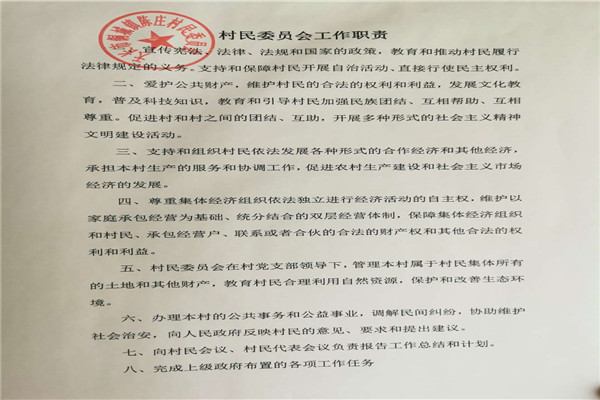 村民委员会工作职责
一、宣传宪法、法律、法规和国家的政策，教育和推动村民履行
法律规定的义务。支持和保障村民开展自治活动、直接行使民主权利。
二、爱护公共财产，维护村民的合法的权利和利益，发展文化教
育，普及科技知识，教育和引导村民加强民族团结、互相帮助、互相
尊重。促进村和村之间的团结、互助，开展多种形式的社会主义精神
文明建设活动。
三、支持和组织村民依法发展各种形式的合作经济和其他经济，
承担本村生产的服务和协调工作，促进农村生产建设和社会主义市场
经济的发展。
四、尊重集体经济组织依法独立进行经济活动的自主权，维护以
家庭承包经营为基础、统分结合的双层经营体制，保障集体经济组织
和村民、承包经营户、联系或者合伙的合法的财产权和其他合法的权
利和利益。
五、村民委员会在村党支部领导下，管理本村属于村民集体所有
的土地和其他财产，教育村民合理利用自然资源，保护和改善生态环
境。
六、办理本村的公共事务和公益事业，调解民间纠纷，协助维护
社会治安，向人民政府反映村民的意见、要求和提出建议。
七、向村民会议、村民代表会议负责报告工作总结和计划。
八、完成上级政府布置的各项工作任务
镇陈庄村民委员